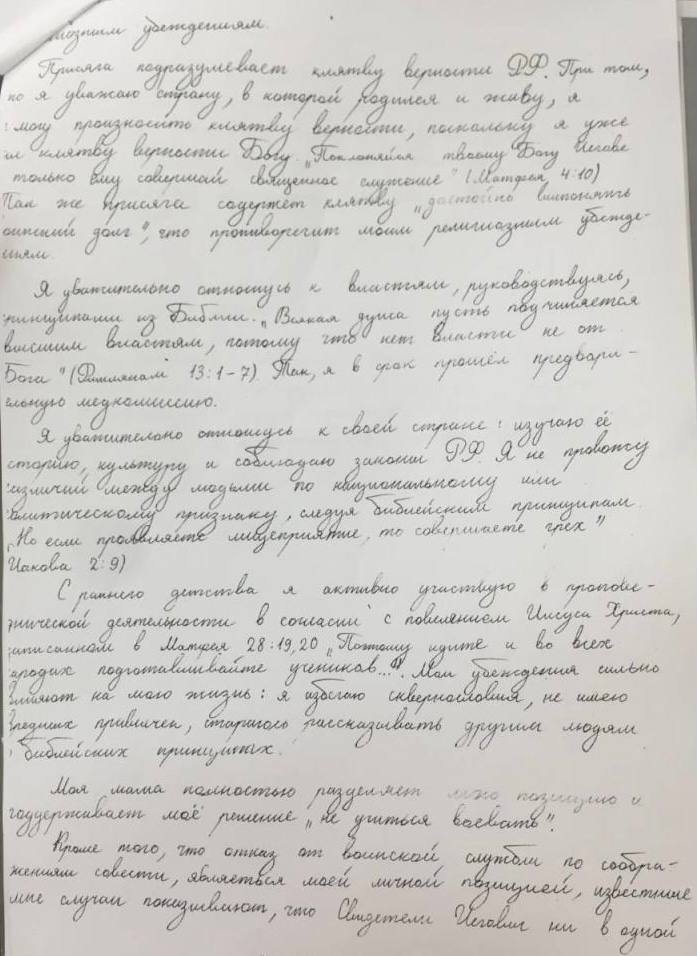 иозным убеждениям.
Присяга подразумевает клятву верности РФ. При том,
то я уважаю страну, в которой родился и живу, я
могу произносить клятву верности, поскольку я уже
ил клятву верности Богу. „Поклоняйся твоему Богу Иегове
только ему совершай священное служение" (Матфея 4:10)
Так же присяга содержет клятву „достойно выполнять
оинский долг", что противоречит моим религиозным убежде-
ниям.
Я уважительно отношусь к властям, руководствуясь,
принципами из Библии. „Всякая душа пусть подчиняется
высшим властям, потому что нет власти не от
Бога" (Римлянам 13:1-7). Так, я в срок прошёл предвари-
ельную медкомиссию.
Я уважительно отношусь к своей стране: изучаю её
сторию, культуру и соблюдаю законы РФ. Я не провожу
различий между людьми по национальному или
олитическому признаку, следуя библейским принципам.
„Но если проявляете лицеприятие, то совершаете грех"
Иакова 2:9)
С раннего детства я активно участвую в пропове-
днической деятельности в согласии с повелением Иисуса Христа,
аписанном в Матфея 28:19,20 „Поэтому идите и во всех
народах подготавливайте учеников...". Мои убеждения сильно
влияют на мою жизнь: я избегаю сквернословия, не имею
вредных привычек, стараюсь рассказывать другим людям
библейских принципах.
Моя мама полностью разделяет мою позицию и
поддерживает моё решение „не учиться воевать".
Кроме того, что отказ от воинской службы по сообра-
жениям совести, является моей личной позицией, известные
мне случаи показывают, что Свидетели Иеговы ни в одной